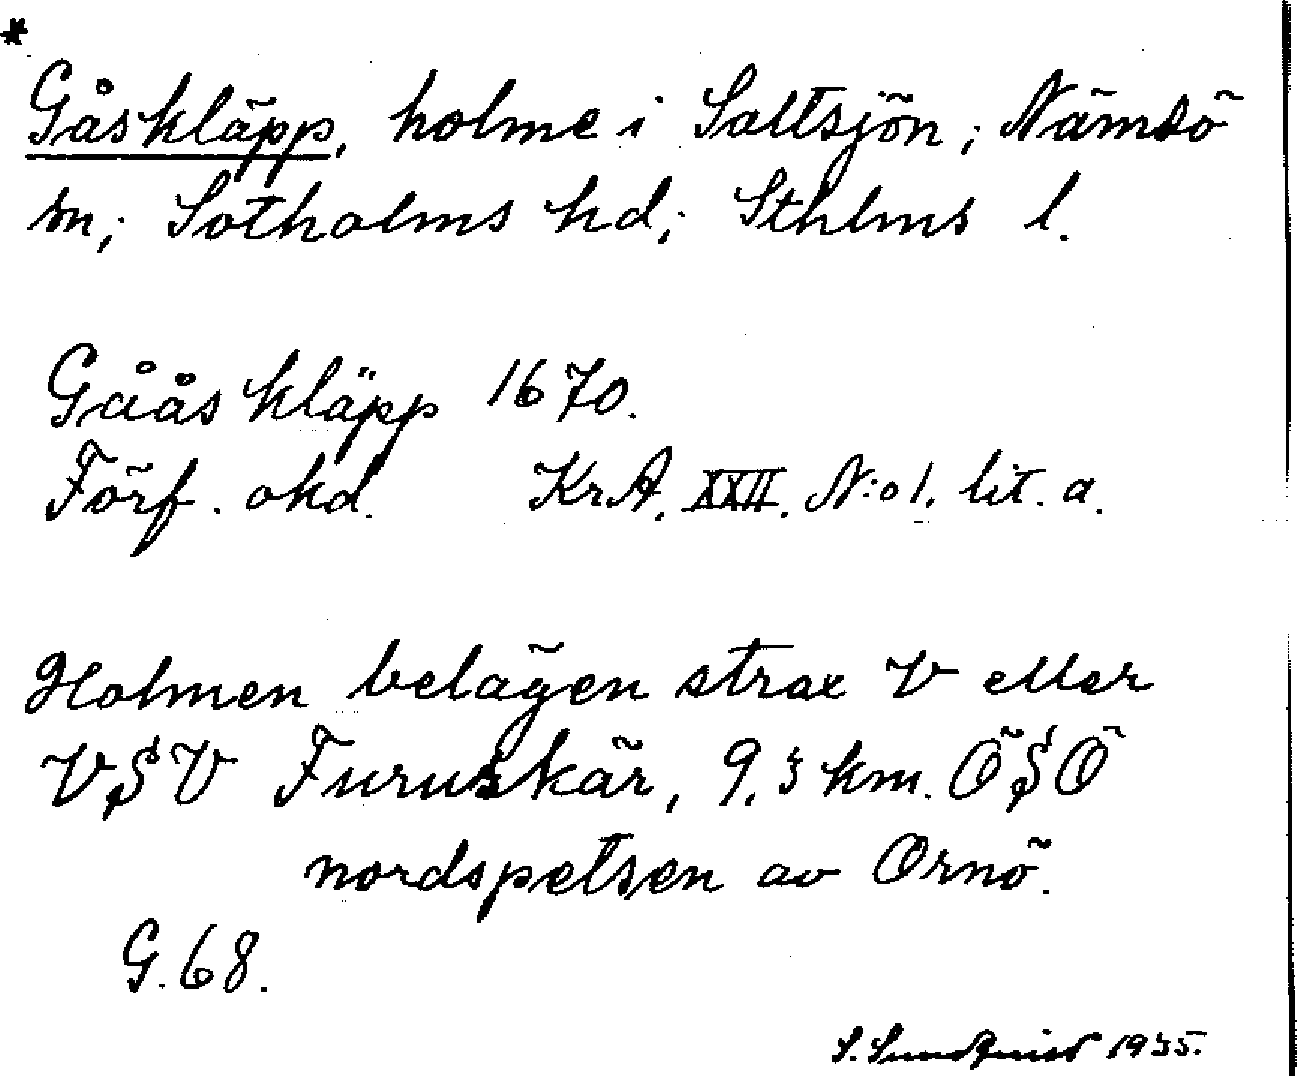 *
Gåskläpp, holme i Saltsjön; Nämdö
sn; Sotholms hd; Sthlms l.
Gåås kläpp 1670.
Förf. okd. KrA. XXII. N:o 1. lit. a.
Holmen belägen strax V eller
VSV Furuskär, 9,3 km. ÖSÖ
nordspetsen av Ornö.
G. 68.
S. Sundquist 1935.